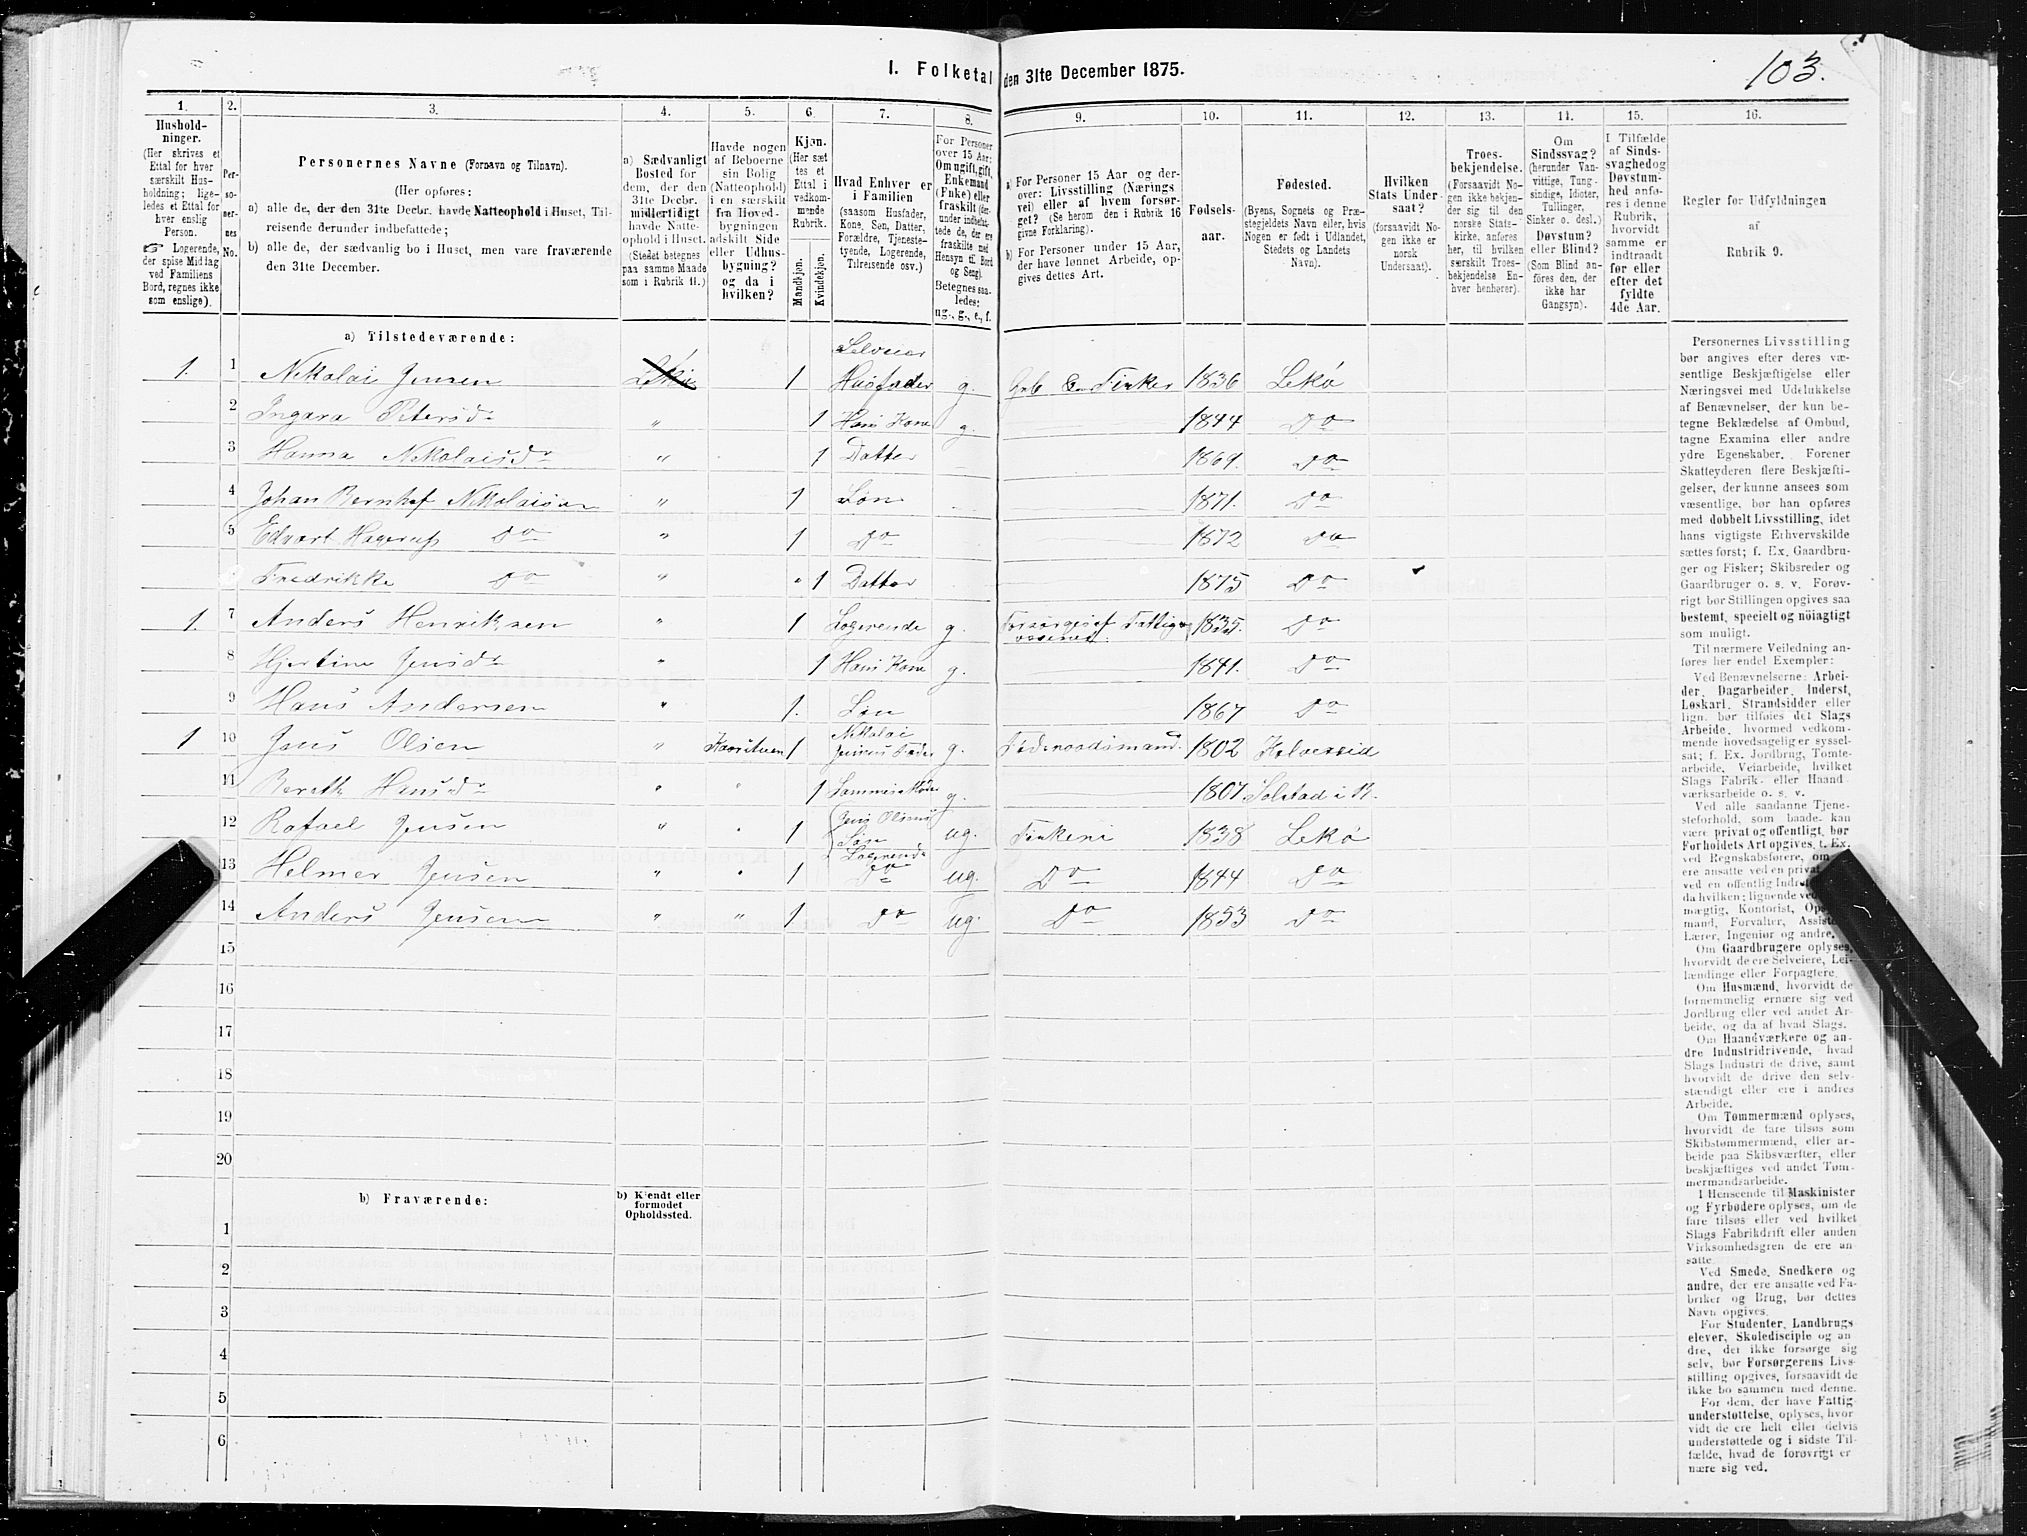 I. Folketal den 31te December 1875.
103.
1. 2. 3. 4. 5. 6. 7. 8. 9. 10. 11. 12. 13. 14. 15. 16.
Hushold-
ninger.
(Her skrives et
Ettal for hver
særskilt Hus-
holdning; lige-
ledes et Ettal for
hver enslig
Person.
☞ Logerende,
der spise Middag
ved Familiens
Bord, regnes ikke
som enslige).
Per-
so-
ner-
nes
No.
Personernes Navne (Fornavn og Tilnavn).
(Her opføres:
a) alle de, der den 31te Decbr. havde Natteophold i Huset, Til-
reisende derunder indbefattede;
b) alle de, der sædvanlig bo i Huset, men vare fraværende
den 31te December.
a) Sædvanligt
Bosted for
dem, der den
31te Decbr.
midlertidigt
havde Natte-
ophold i Huset.
(Stedet betegnes
paa samme Maade
som i Rubrik 11.)
Havde nogen
af Beboerne
sin Bolig
(Natteophold)
i en særskilt
fra Hoved-
bygningen
adskilt Side
eller Udhus-
bygning?
og da i
hvilken?
Kjøn.
(Her sæt
tes et
Ettal i
vedkom-
mende
Rubrik.
Mandkjøn.
Kvindekjøn.
Hvad Enhver er
i Familien
(saasom Husfader,
Kone, Søn, Datter,
Forældre, Tjeneste-
tyende, Logerende,
Tilreisende osv.)
For Personer
over 15 Aar:
Om ugift, gift,
Enkemand
(Enke) eller
fraskilt (der-
under indbefat-
tede de, der ere
fraskilte med
Hensyn til Bord
og Seng).
Betegnes saa-
ledes:
ug., g., e., f.
a) For Personer 15 Aar og der-
over: Livsstilling (Nærings
vei) eller af hvem forsør-
get? (Se herom den i Rubrik 16
givne Forklaring).
b) For Personer under 15 Aar,
der have lønnet Arbeide, op-
gives dettes Art.
Fødsels-
aar.
Fødested.
(Byens, Sognets og Præ-
stegjeldets Navn eller, hvis
Nogen er født i Udlandet,
Stedets og Landets
Navn).
Hvilken
Stats Under-
saat?
(forsaavidt No-
gen ikke er
norsk
Undersaat).
Troes-
bekjendelse.
(Forsaavidt No-
gen ikke bekjen-
der sig til den
norske Stats-
kirke, anføres
her, til hvilken
særskilt Troes-
bekjendelse En-
hver henhører).
Om
Sindssvag?
(herunder Van-
vittige, Tung-
sindige, Idioter,
Tullinger,
Sinker o. desl.)
Døvstum?
eller Blind?
(Som Blind an-
føres den, der
ikke har
Gangsyn).
I Tilfælde
af Sinds-
svaghed og
Døvstum-
hed anfø-
res i denne
Rubrik,
hvorvidt
samme er
indtraadt
før eller
efter det
fyldte
4de Aar.
Regler for Udfyldningen
af
Rubrik 9.
a) Tilstedeværende:
Selveier
1. 1 Nikolai Jensen 1 Husfader g. 1836 Lekø
2 Petersdr " 1 Hans Kone g. 1844 Do
3 Hanna Nikolaisdr " 1 Datter 1869. Do
4 Johan Bernhof Nikolaisen " 1 Søn 1871. Do
5 Edvart Hagerup Do " 1 Do 1872 Do
Fredrikke Do " " 1 Datter 1875 Do
1. 7 Anders Henriksen " 1 Logerende g. Forsørges af Fattigv 1835. Do
8 Jensdr " 1 Hans Kone g. 1841. Do
9 Hans Andersen " 1. Søn 1867 Do
1 10 Jens Olsen " 1 Nikolai Jensens Fader g. Føderaadsmand. 1802
11 Bereth Hansdr " " 1 Sammes Moder g. 1807 Solstad i B.
12 Rafael Jensen " " 1 Jens Olsens Søn Logerende ug. Fiskeri 1838 Lekø
13 Helmer Jensen " " 1 Do ug. Do 1844 Do
14 Anders Jensen " " 1 Do ug. Do 1853 Do
15
16
17
18
19
20
b) Fraværende:
b) Kjendt eller
formodet
Opholdssted.
1
2
3
4
5
6
Personernes Livsstilling
bør angives efter deres væ-
sentlige Beskjæftigelse eller
Næringsvei med Udelukkelse
af Benævnelser, der kun be-
tegne Beklædelse af Ombud,
tagne Examina eller andre
ydre Egenskaber. Forener
Skatteyderen flere Beskjæfti-
gelser, der kunne ansees som
væsentlige, bør han opføres
med dobbelt Livsstilling, idet
hans vigtigste Erhvervskilde
sættes først; f. Ex. Gaardbru-
ger og Fisker; Skibsreder og
Gaardbruger o. s. v. Forøv-
rigt bør Stillingen opgives saa
bestemt, specielt og nöiagtigt
som muligt.
Til nærmere Veiledning an-
føres her endel Exempler:
Ved Benævnelserne: Arbei-
der, Dagarbeider, Inderst,
Løskarl, Strandsidder eller
lign. bør tilføies det Slags
Arbeide, hvormed vedkom-
mende hovedsagelig er syssel-
sat; f. Ex. Jordbrug, Tomte-
arbeide, Veiarbeide, hvilket
Slags Fabrik- eller Haand-
værksarbeide o. s. v.
Ved alle saadanne Tjene-
steforhold, som baade kan
være privat og offentligt, bør
Forholdets Art opgives, f. Ex.
ved Regnskabsførere, om
ere ansatte ved en privat
ved en offentlig Indr
da hvilken; lignende ved
mægtig, Kontorist, Op
mand, Forvalter, Assist
Lærer, Ingeniør og andre.
Om Gaardbrugere oplyses,
hvorvidt de ere Selveiere, Lei-
lændinge eller Forpagtere.
Om Husmænd, hvorvidt de
fornemmelig ernære sig ved
Jordbrug eller ved andet Ar-
beide, og da af hvad Slags.
Om Haandværkere og an-
dre Industridrivende, hvad
Slags Industri de drive, samt
hvorvidt de drive den selv-
stændigt eller ere i andres
Arbeide.
Om Tømmermænd oplyses,
hvorvidt de fare tilsøs som
Skibstømmermænd, eller ar-
beide paa Skibsværfter, eller
beskjæftiges ved andet Tøm-
mermandsarbeide.
I Henseende til Maskinister
og Fyrbødere oplyses, om de
fare tilsøs eller ved hvilket
Slags Fabrikdrift eller anden
Virksomhedsgren de ere an-
satte.
Ved Smede, Snedkere og
andre, der ere ansatte ved Fa-
briker og Brug, bør dettes
Navn opgives.
For Studenter, Landbrugs
elever, Skoledisciple og an
dre, der ikke forsørge sig
selv, bør Forsørgerens Livs-
stilling opgives, forsaavidt de
ikke bo sammen med denne.
For dem, der have Fattig
understøttelse, oplyses, hvor
vidt de ere helt eller delvis
understøttede og i sidste Til-
fælde, hvad de forøvrigt er
nære sig ved.